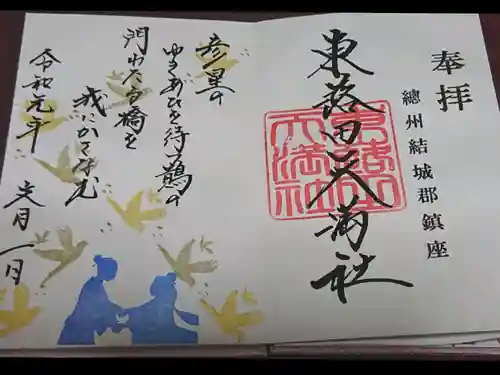 奉拝
總州結城郡鎮座
東蕗田天満社
東蕗田天満社
彦星の
ゆきあひを待つ鵲の
門わたる橋を
我にかさなむ
令和元年
文月一日